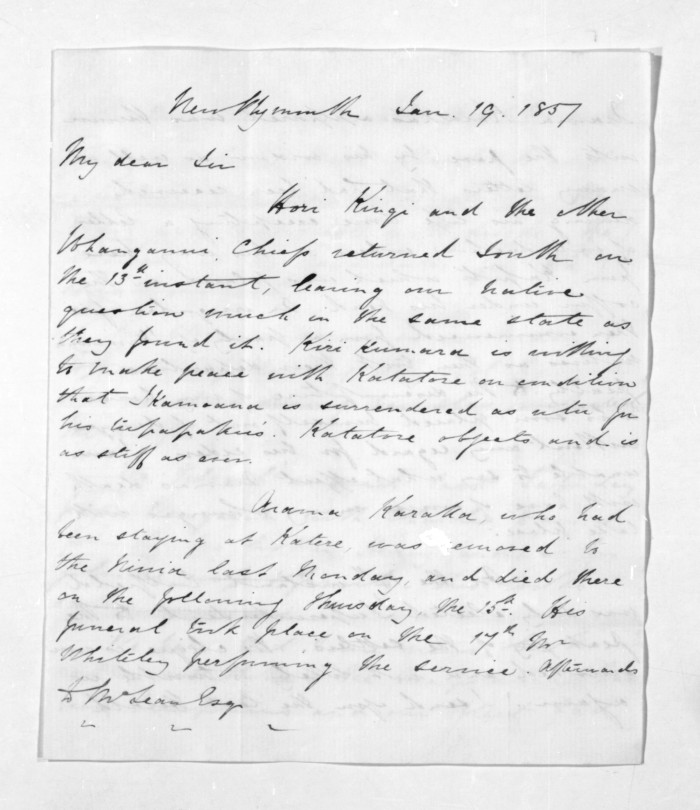 New Plymouth Jan. 19. 1857
My dear Sir
Hori Kingi and the other
Whanganui Chiefs returned South on
the 13th instant, leaving our native
question much in the same state as
they found it. Kiri Kumara is willing
to make peace with Katatore on condition
that Ikamoana is surrendered as utu for
his tupapakus. Katatore objects and is
as stiff as ever.
Arama Karaka, who had
been staying at Katere, was removed to
the Ninia last Monday, and died there
on the following Thursday, the 15th. His
funeral took place on the 17th Mr
Whiteley performing the service. Afterwards
D McLean Esqr